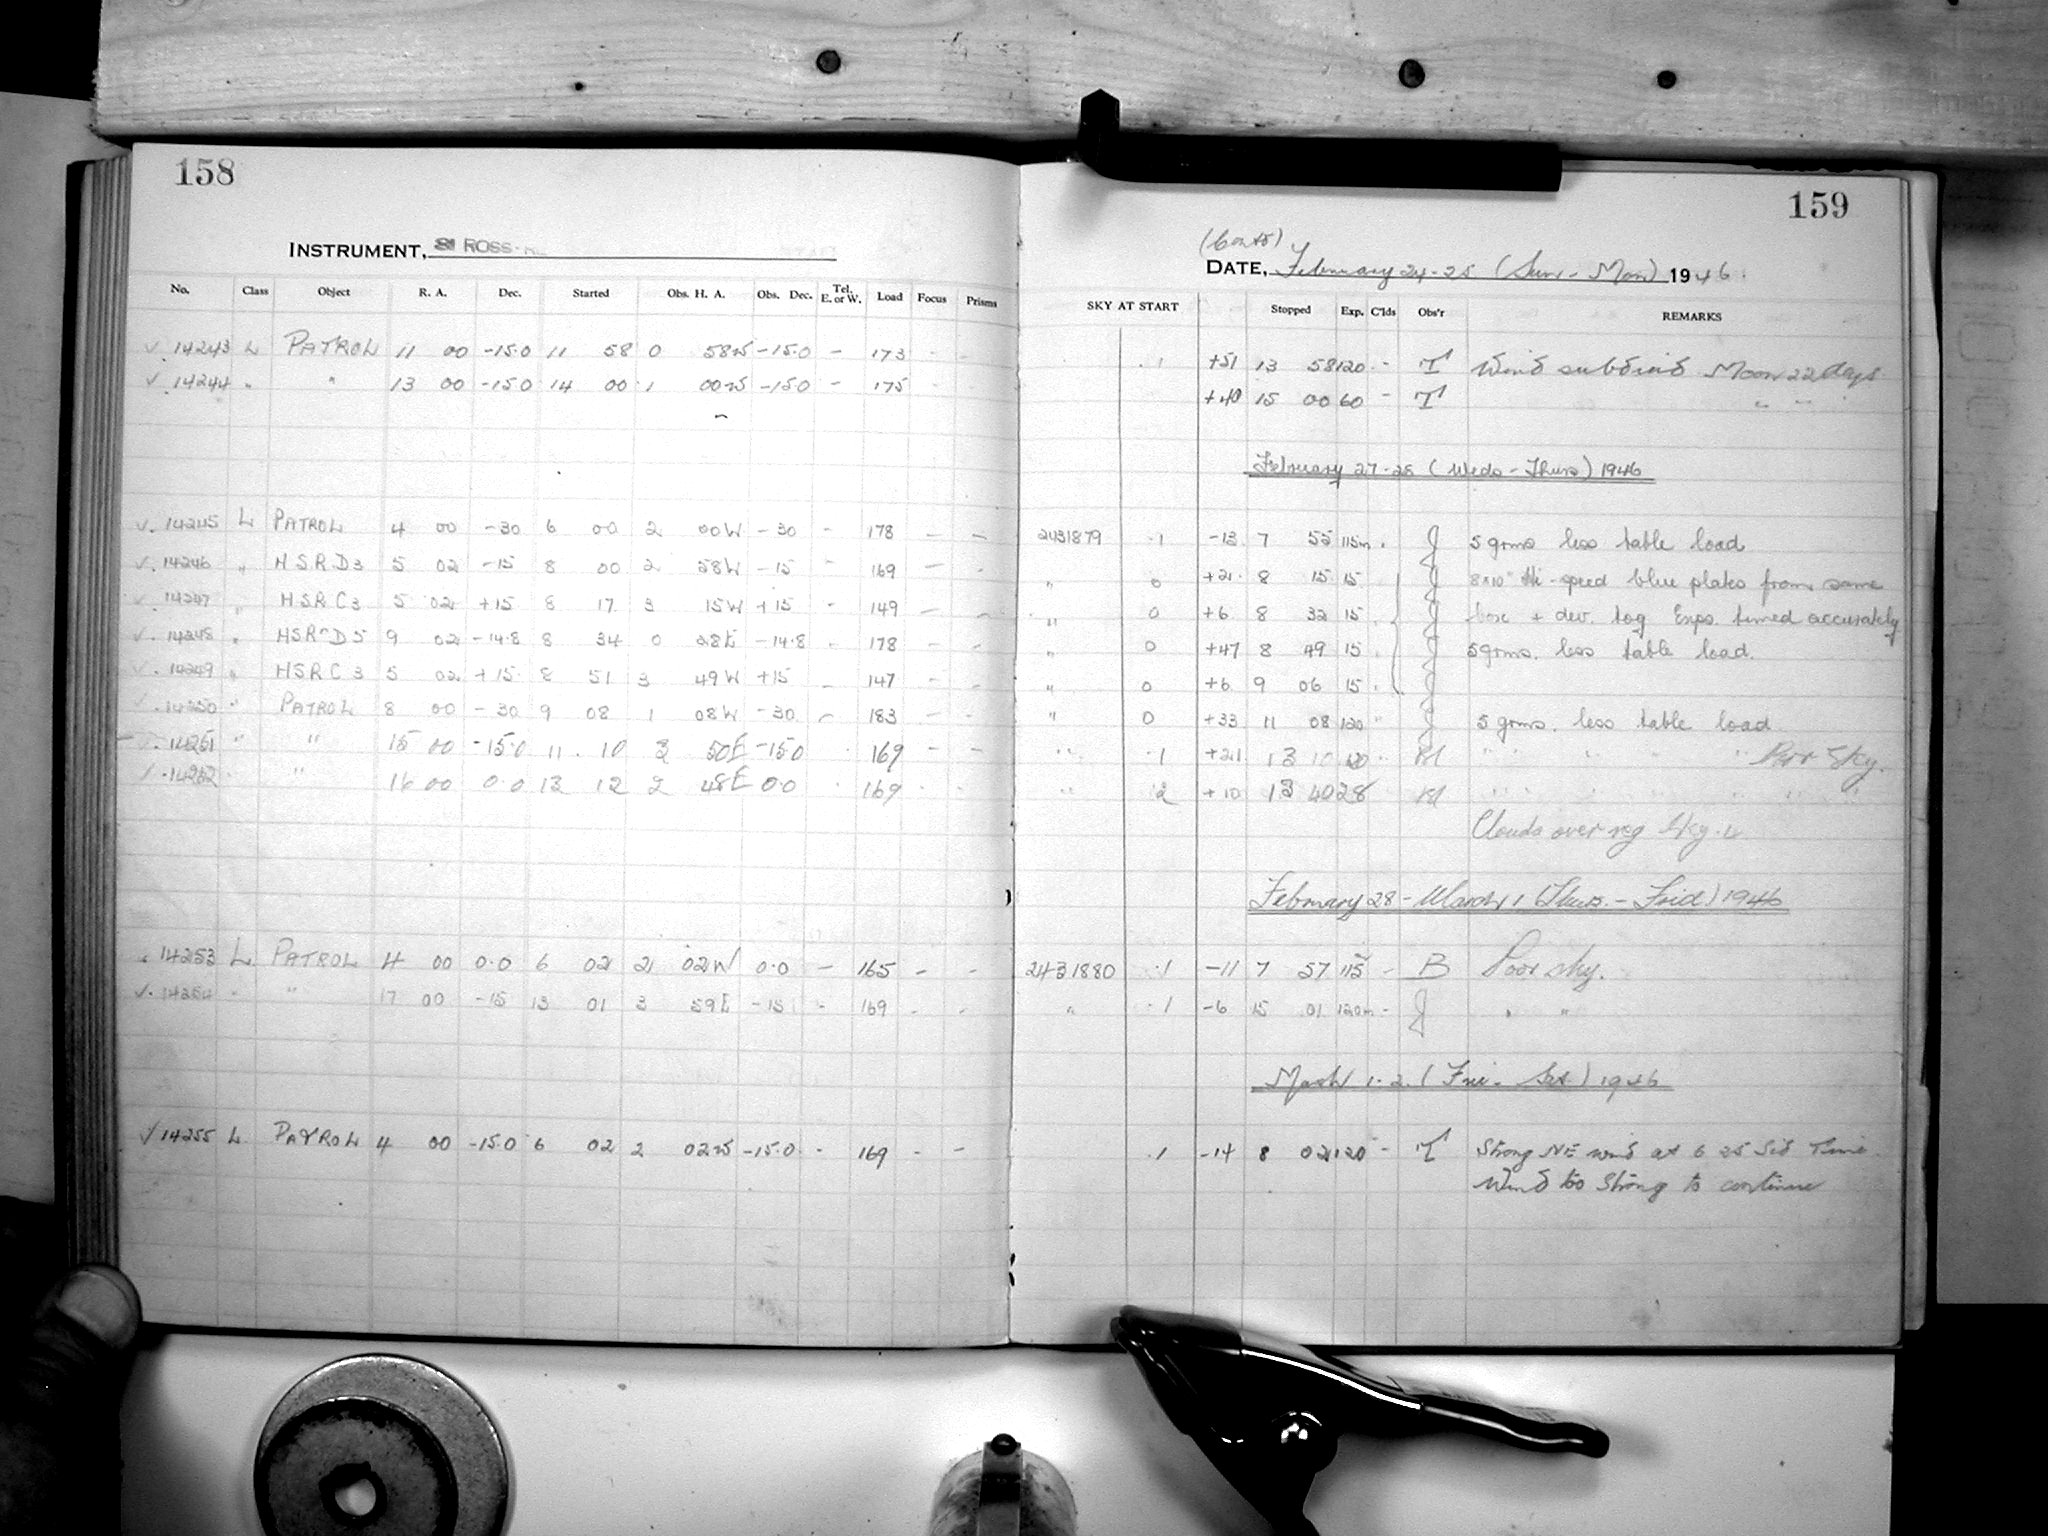 158
INSTRUMENT, ROSS-
No. Class Object R. A. Dec. Started Obs. H. A. Obs. Dec. Tel. E. or W. Load Focus Prisms
✓ 14243 L PATROL 11 00 -15.0 11 58 0 58W -15.0 - 173 - -
✓ 14244 " " 13 00 -15.0 14 00 1 00W -15.0 - 175
✓. 14245 L PATROL 4 00 -30 6 00 2 00W -30 - 178 - -
✓. 14246 " HSRD3 5 02 -15 8 00 2 58W -15 - 169 - -
✓. 14247 " HSRC3 5 02 +15 8 17 3 15W +15 - 149 - -
✓. 14248 " HSRD5 9 02 -14.8 8 34 0 28E -14.8 - 178 - -
✓. 14249 " HSRC3 5 02 +15 8 51 3 49W +15 - 147 - -
✓. 14250 " PATROL 8 00 -30 9 08 1 08W -30 - 183 - -
✓. 14251 " " 15 00 -15.0 11 10 3 50E -15.0 169 - -
✓. 14252 " 16 00 0.0 13 12 2 48E 0.0 169
14253 L PATROL 4 00 0.0 6 02 2 02W 0.0 - 165 - -
✓. 14254 " " 17 00 -15 13 01 3 59E -15 - 169 - -
✓ 14255 L PATROL 4 00 -15.0 6 02 2 02W -15.0 - 169 - -
159
(Contd)
DATE, February 24-25 (Sun - Mon) 1946.
SKY AT START Stopped Exp. C'lds Obs'r REMARKS
.1 +51 13 58 120 - T Wind subsided Moon 22 days
+40 15 00 60 - T " " "
February 27-28 (Weds - Thurs) 1946
2431879 .1 -13 7 55 115m. J 5 grms less table load
" 0 +21 8 15 15 J 8x10" Hi-speed blue plates from same
" 0 +6 8 32 15 J box + dev. tog Exps. timed accurately
" 0 +47 8 49 15 J 5 grms. less table load.
" 0 +6 9 06 15 J
" 0 +33 11 08 120 " J 5 grms. less table load
" .1 +21 13 10 120 Bl " " " " " Poor Sky.
" .2 +10 13 40 28 Bl " " " " " " "
Clouds over reg Sky
February 28 - March 1 (Thurs. - Frid) 1946
2431880 .1 -11 7 57 115 - B Poor sky.
" .1 -6 15 01 120m - J " "
March 1-2 (Fri - Sat) 1946
.1 -14 8 02 120 - T Strong NE wind at 6 25 Sid Time.
Wind too strong to continue